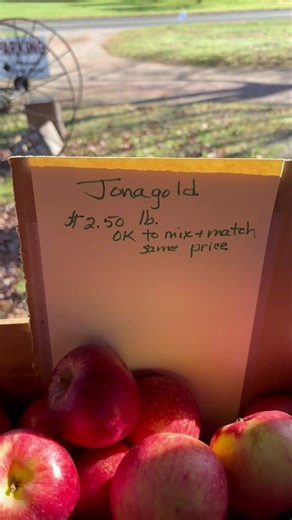 PARKING
Jonagold
$2.50 lb.
OK to mix + match
same price